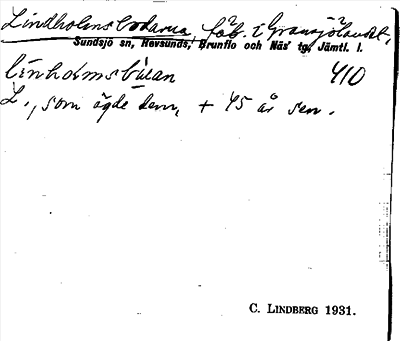 Lindholmsbodarna, fäb. i Gransjölandet,
Sundsjö sn, Revsunds, Brunflo och Näs' tg, Jämtl. l.
linholmsbùan 410
L., som ägde dem, + 45 år sen.
C. LINDBERG 1931.